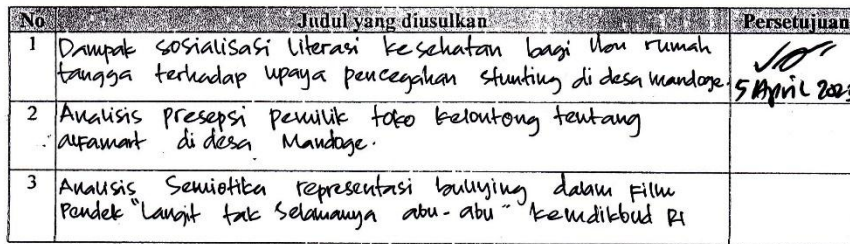 No Judul yang diusulkan Persetujuan
1 Dampak sosialisasi literasi kesehatan bagi ibu rumah
tangga terhadap upaya pencegahan stunting di desa mandoge.
5 April 202
2 Analisis presepsi pemilik toko kelontong tentang
alfamart di desa Mandoge.
3 Analisis Semiotika representasi bullying dalam Film
Pendek "Langit tak Selamanya abu-abu" kemdikbud RI